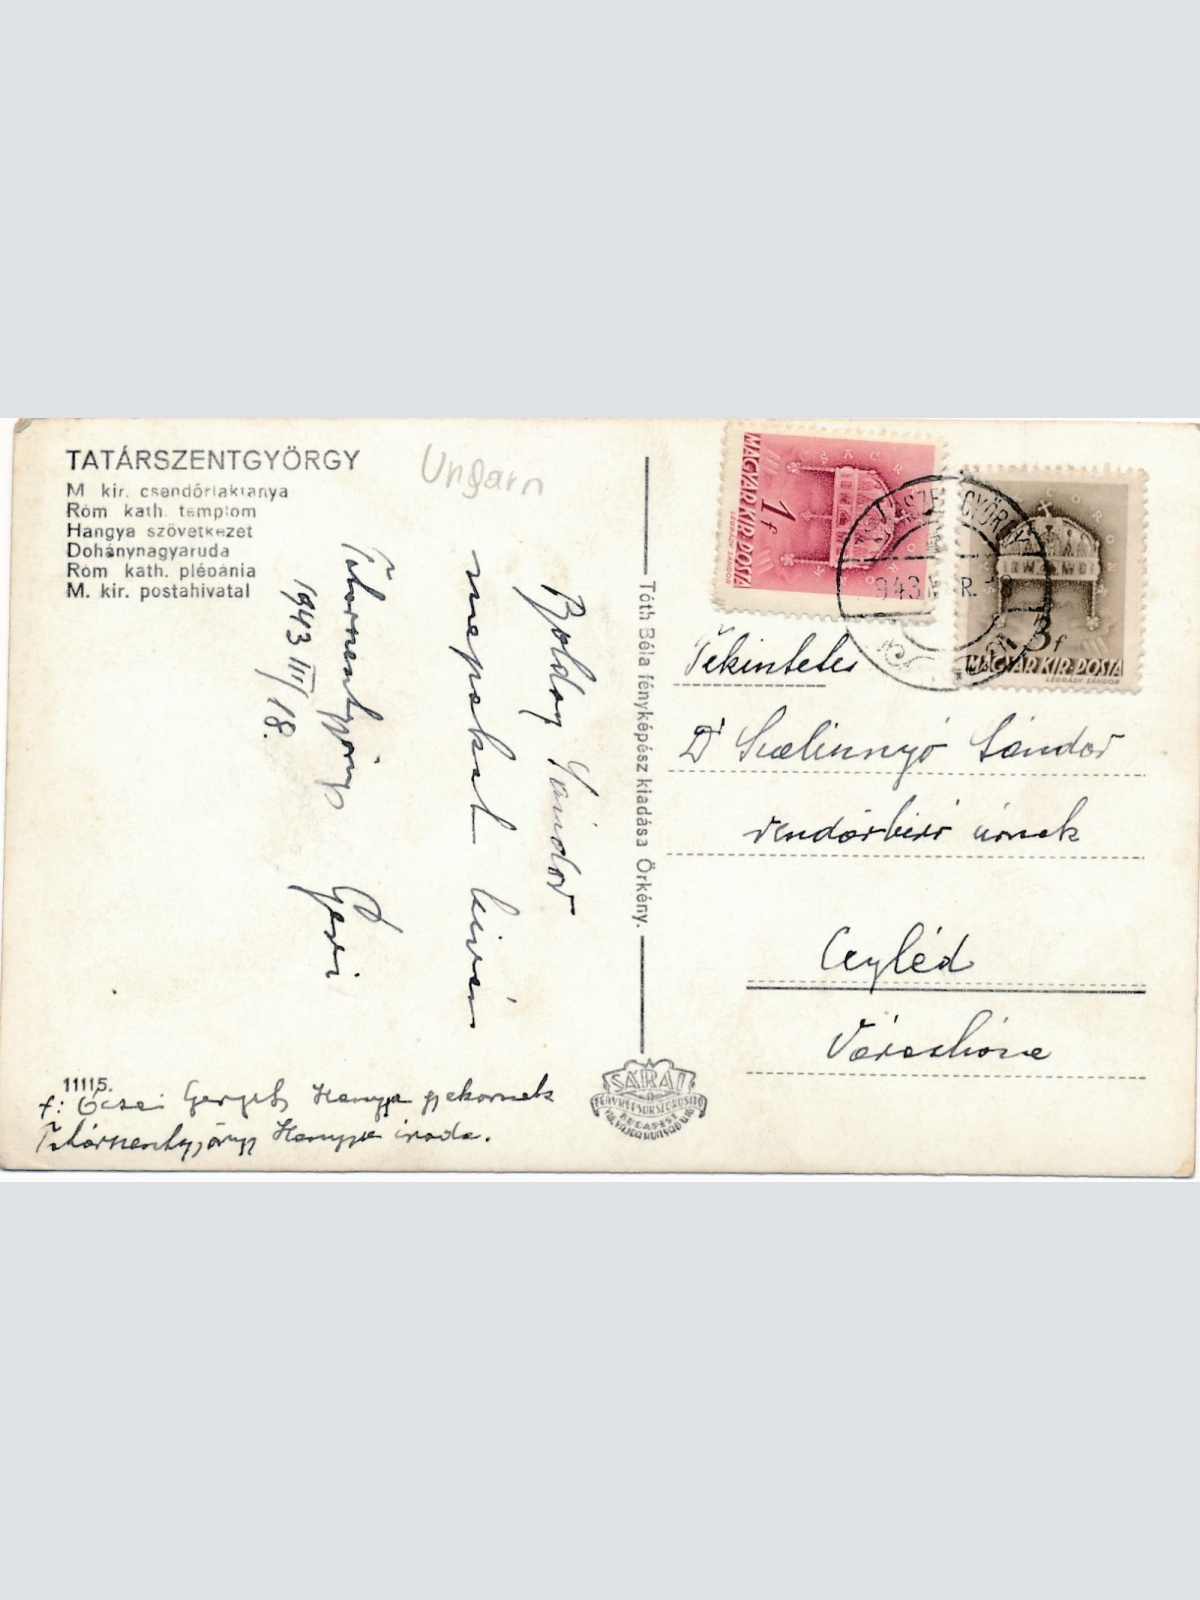 TATÁRSZENTGYÖRGY
M kir. csendőrlaktanya
Róm kath. templom
Hangya szövetkezet
Dohánynagyaruda
Róm kath. plébánia
M. kir. postahivatal
Ungarn
Boldog Sándor
napokat kíván
Tatárszentgyörgy
1943 III/18.
Geri
11115.
f: Ócsai Gergely Hangya gyakornok
Tatárszentgyörgy Hangya iroda.
Tóth Béla fényképész kiadása Örkény.
SÁRAI
BUDAPEST
MAGYAR KIR. POSTA
1f
LÉGRÁDY SÁNDOR
943 MÁR. 18
3f
MAGYAR KIR. POSTA
LÉGRÁDY SÁNDOR
Tekintetes
Dr Sándor
rendőrbíró úrnak
Cegléd
Városháza